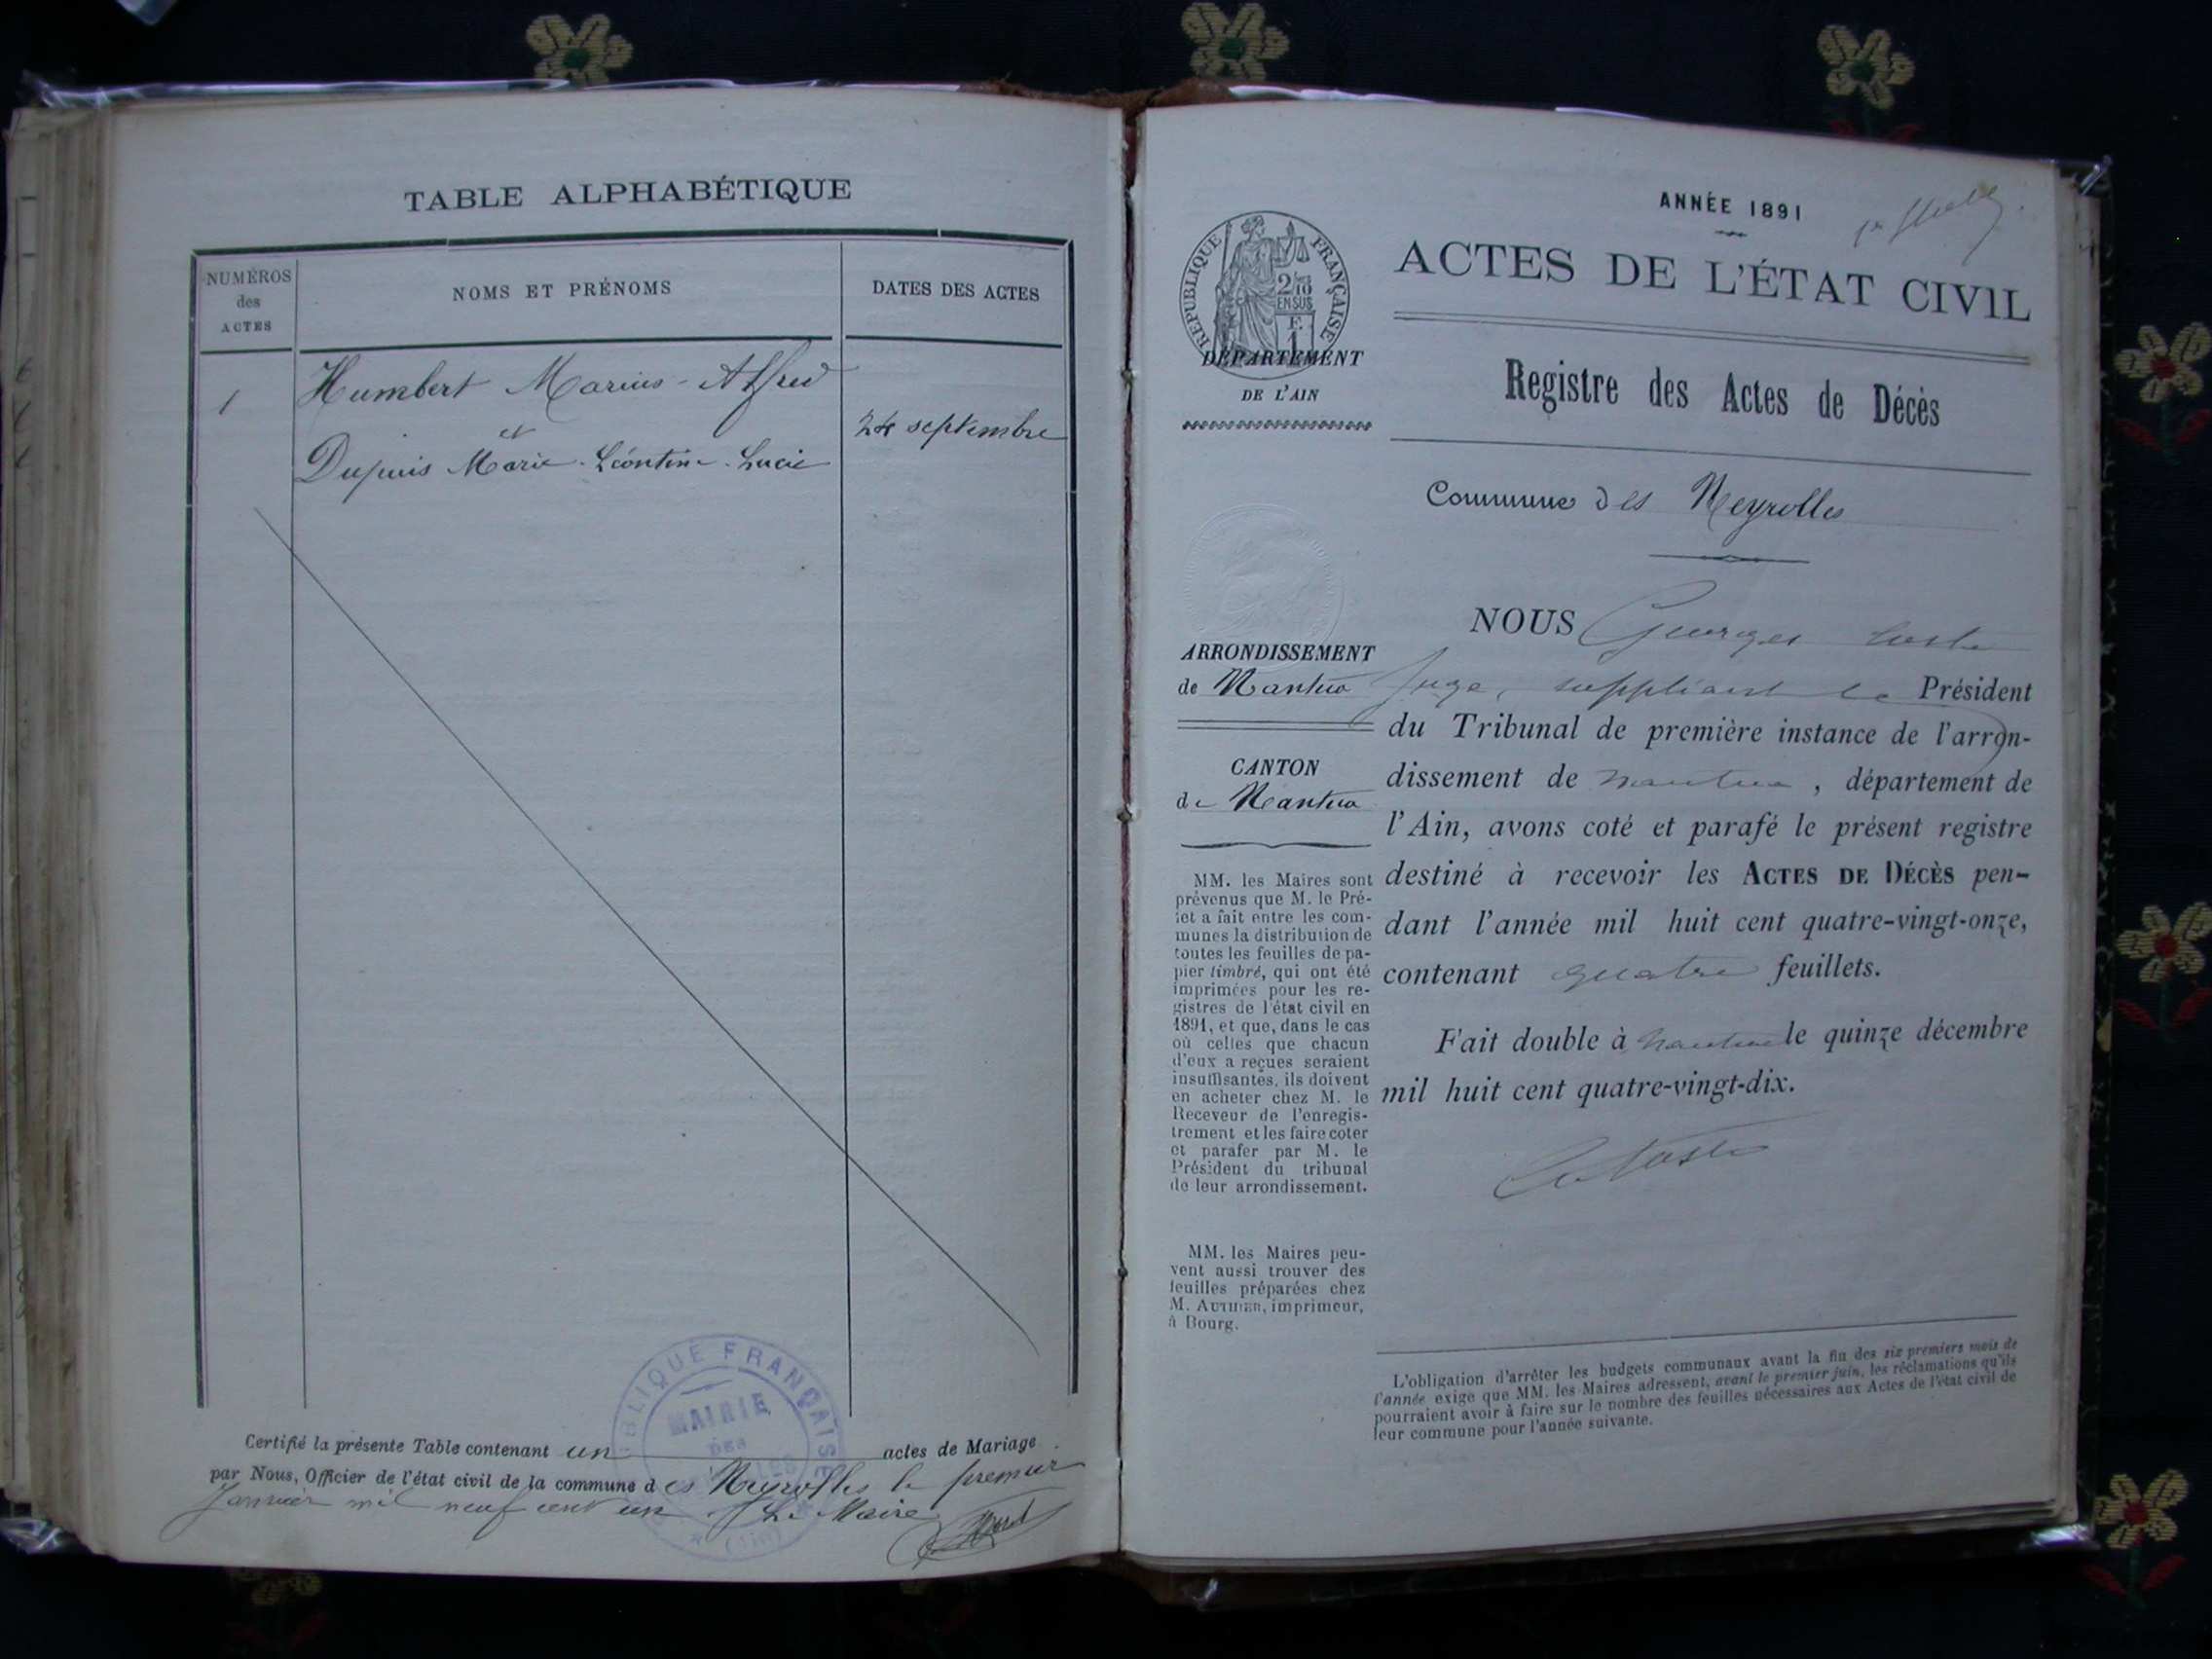 TABLE ALPHABÉTIQUE
NUMÉROS
des
ACTES
NOMS ET PRÉNOMS
DATES DES ACTES
1
Humbert Marius-Alfred
et
24 septembre
Dupuis Marie-Léontine-Lucie
RÉPUBLIQUE FRANÇAISE
MAIRIE
DES
(Ain)
Certifié la présente Table contenant un actes de Mariage
par Nous, Officier de l'état civil de la commune des Neyrolles le premier
Janvier mil neuf cent un Le Maire
ANNÉE 1891
ACTES DE L'ÉTAT CIVIL
RÉPUBLIQUE FRANÇAISE
2/10
EN SUS
F.
1
DÉPARTEMENT
DE L'AIN
Registre des Actes de Décès
Commune des Neyrolles
ARRONDISSEMENT
de Nantua
CANTON
de Nantua
MM. les Maires sont
prévenus que M. le Pré-
fet a fait entre les com-
munes la distribution de
toutes les feuilles de pa-
pier timbré, qui ont été
imprimées pour les re-
gistres de l'état civil en
1891, et que, dans le cas
où celles que chacun
d'eux a reçues seraient
insuffisantes, ils doivent
en acheter chez M. le
Receveur de l'enregis-
trement et les faire coter
et parafer par M. le
Président du tribunal
de leur arrondissement.
MM. les Maires peu-
vent aussi trouver des
feuilles préparées chez
M. AUTHIER, imprimeur,
à Bourg.
NOUS Georges
Juge, suppléant le Président
du Tribunal de première instance de l'arron-
dissement de Nantua, département de
l'Ain, avons coté et parafé le présent registre
destiné à recevoir les ACTES DE DÉCÈS pen-
dant l'année mil huit cent quatre-vingt-onze,
contenant quatre feuillets.
Fait double à Nantua le quinze décembre
mil huit cent quatre-vingt-dix.
L'obligation d'arrêter les budgets communaux avant la fin des six premiers mois de
l'année exige que MM. les Maires adressent, avant le premier juin, les réclamations qu'ils
pourraient avoir à faire sur le nombre des feuilles nécessaires aux Actes de l'état civil de
leur commune pour l'année suivante.